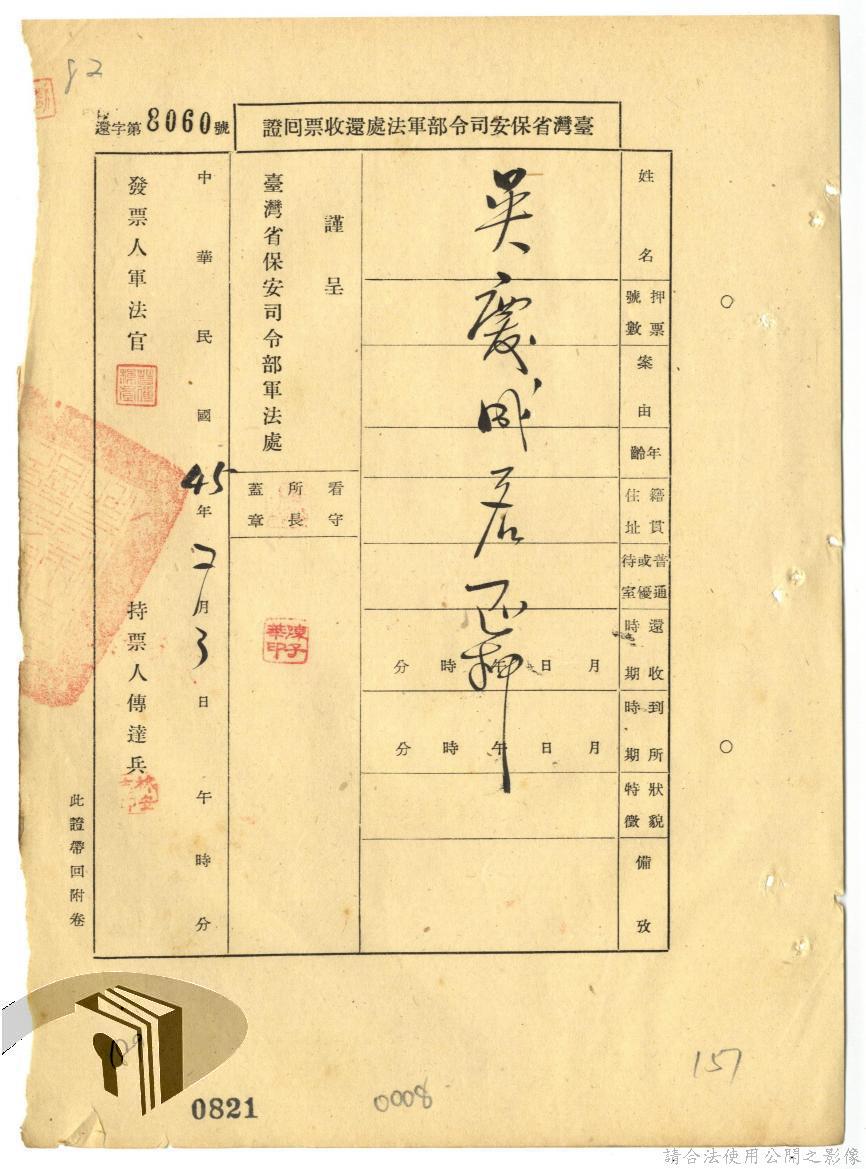 82
臺灣省保安司令部軍法處還收票回證
還字第8060號
姓名
押票號數
案由
年齡
籍貫住址
普通或優待室
還收時期
月 日 午 時 分
到所時期
月 日 午 時 分
狀貌特徵
備攷
吳慶成
謹呈
臺灣省保安司令部軍法處
看守所長蓋章
陳子華印
中華民國45年2月3日午時分
發票人軍法官
持票人傳達兵
此證帶回附卷
0821
0008
157
請合法使用公開之影像